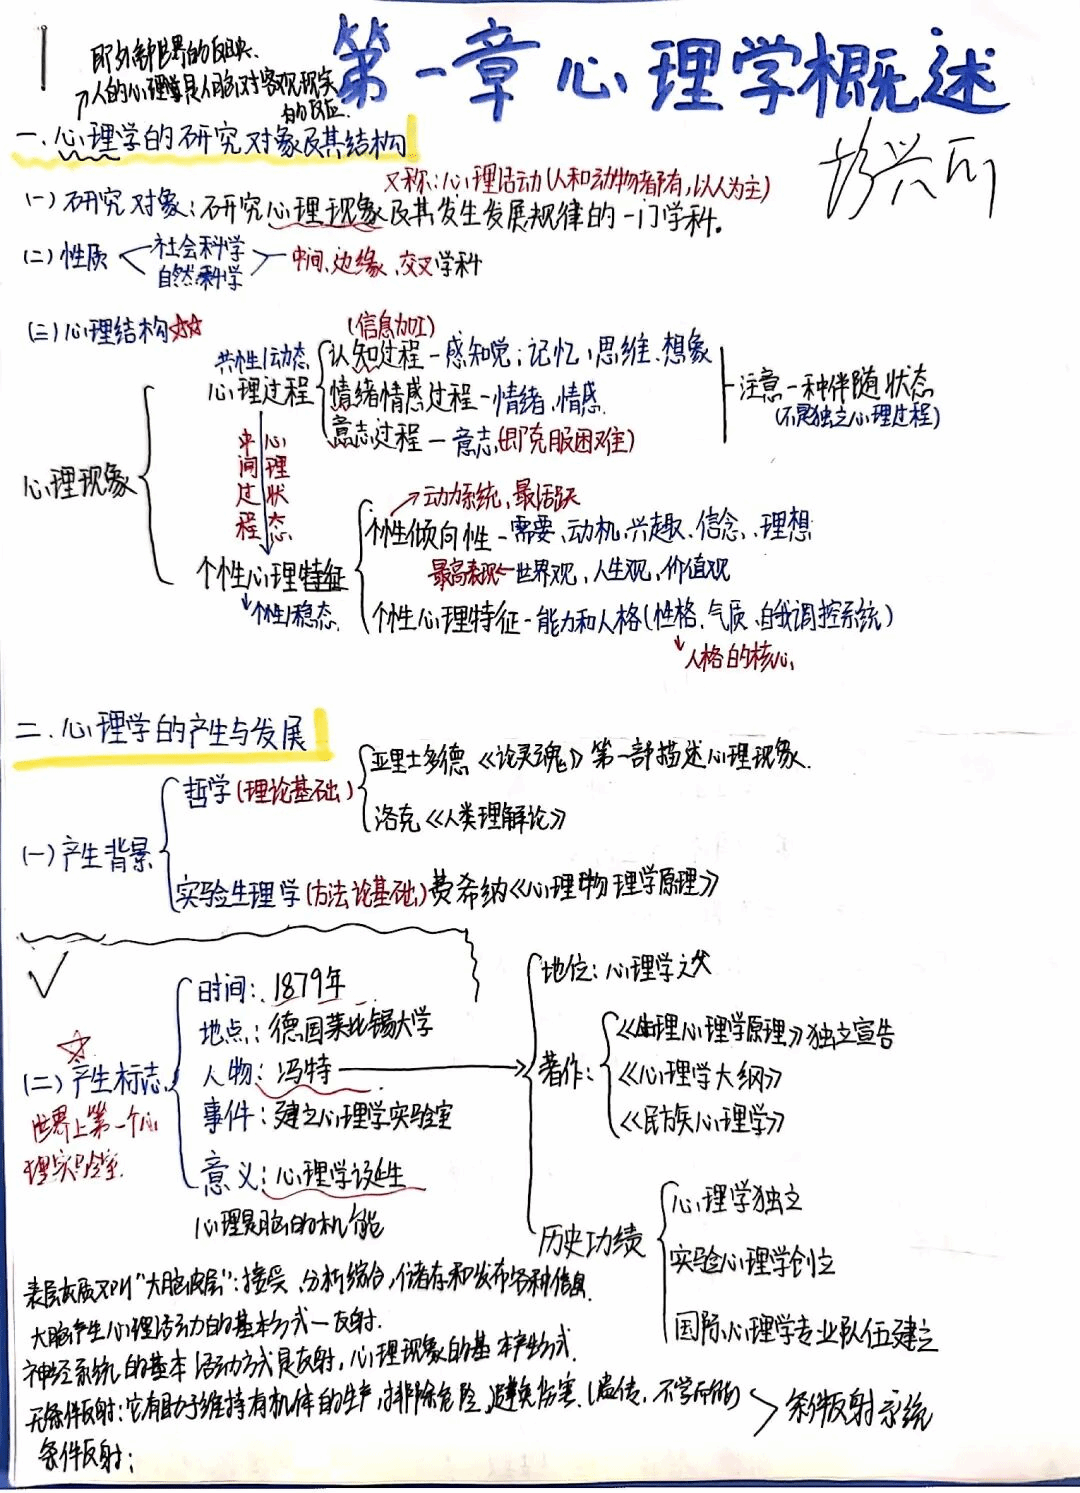 第一章 心理学概述
即外部世界的反映.
人的心理学是人脑对客观现实
的反应.
一.心理学的研究对象及其结构
又称:心理活动(人和动物都有,以人为主)
(一)研究对象:研究心理现象及其发生发展规律的一门学科。
(二)性质 社会科学 自然科学 中间、边缘、交叉学科
(三)心理结构☆☆
(信息加工)
共性/动态
心理过程
认知过程-感知觉;记忆、思维.想象
情绪情感过程-情绪、情感.
意志过程-意志(即克服困难)
注意-种伴随状态
(不是独立心理过程)
心理现象
中间过程
心理状态
动力系统,最活跃
个性倾向性-需要、动机、兴趣、信念、理想
最高表现 世界观,人生观,价值观
个性心理特征
个性/稳态.
个性心理特征-能力和人格(性格、气质、自我调控系统)
人格的核心
二.心理学的产生与发展
(一)产生背景
哲学(理论基础)
亚里士多德《论灵魂》第一部描述心理现象.
洛克《人类理解论》
实验生理学(方法论基础)费希纳《心理物理学原理》
☆
(二)产生标志
世界上第一个心
理实验室.
时间:1879年
地点:德国莱比锡大学
人物:冯特
事件:建立心理学实验室
意义:心理学诞生
地位:心理学之父
著作:
《生理心理学原理》独立宣告
《心理学大纲》
《民族心理学》
历史功绩
心理学独立
实验心理学创立
国际心理学专业队伍建立
心理是脑的机能
表层灰质又叫“大脑皮层”:接受、分析综合,储存和发布各种信息.
大脑产生心理活动的基本方式—反射.
神经系统的基本活动方式是反射,心理现象的基本产生方式.
无条件反射:它有助于维持有机体的生产,排除危险、避免伤害.(遗传、不学而能)
条件反射:
条件反射系统